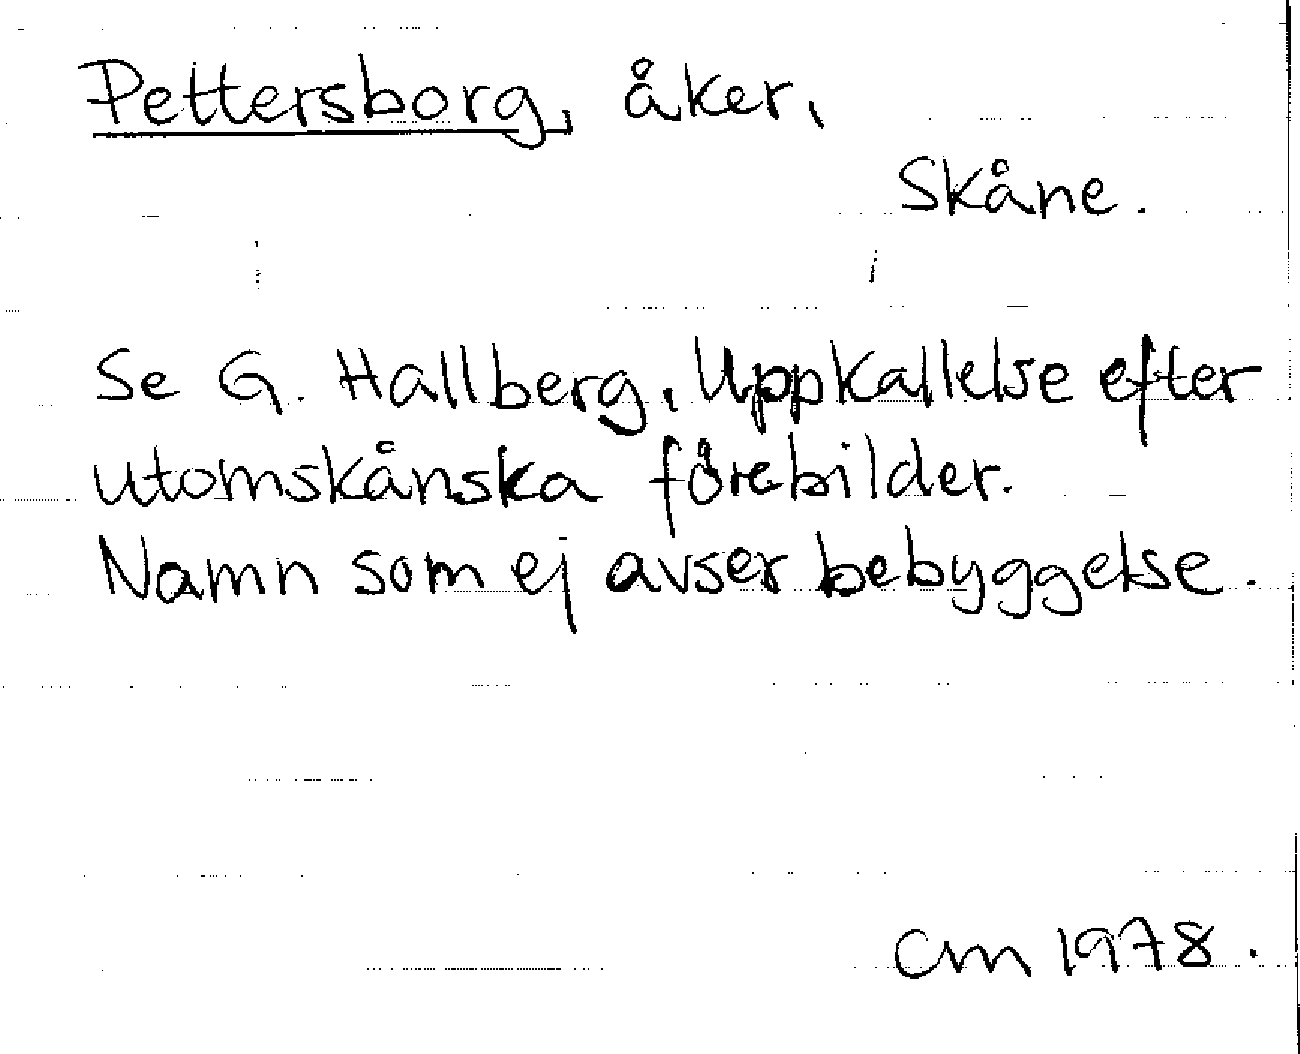 Pettersborg, åker,
Skåne.
Se G. Hallberg, Uppkallelse efter
utomskånska förebilder.
Namn som ej avser bebyggelse.
CM 1978.